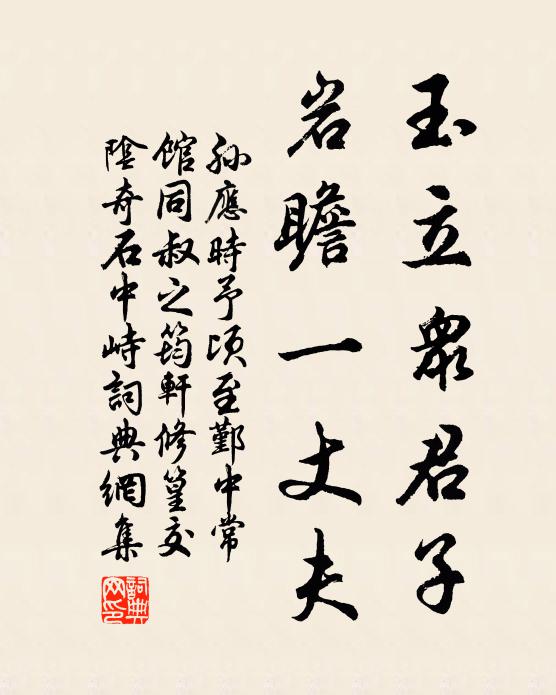 玉立衆君子
岩瞻一丈夫
孫應時予頃至鄞中常
館同叔之筠軒修篁交
陰奇石中峙詞典網集
詞典网印